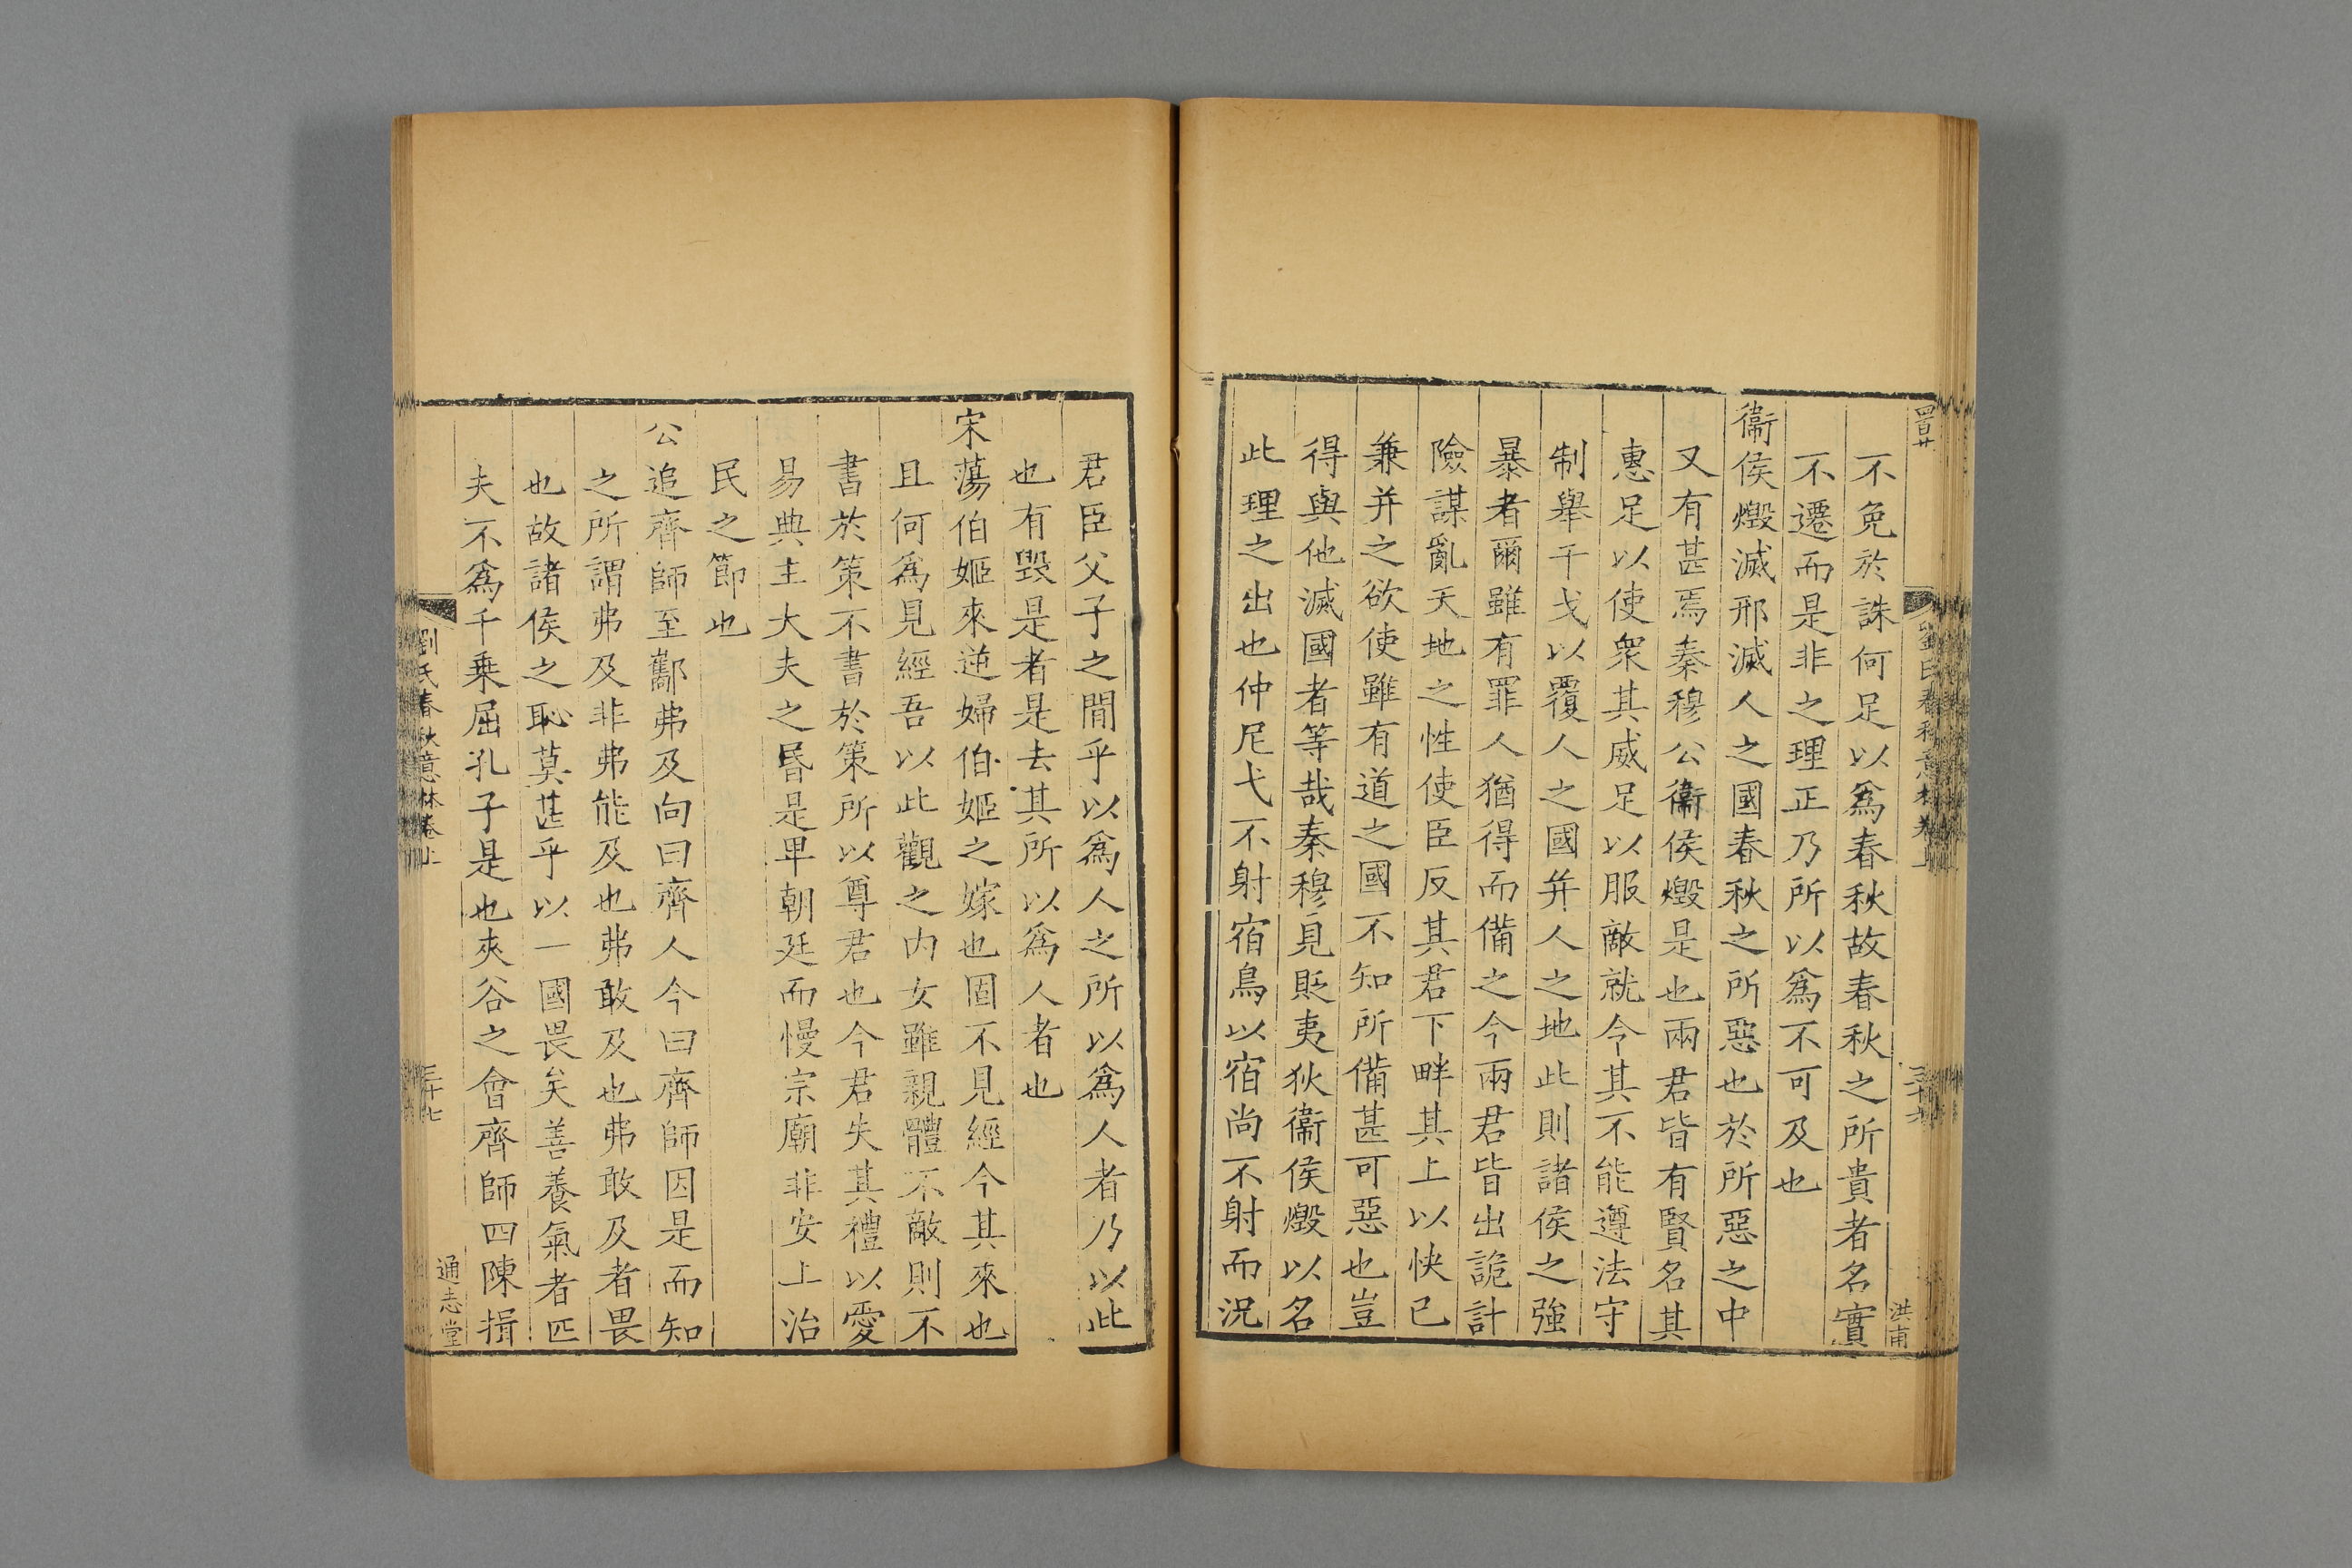 不免於誅何足以爲春秋故春秋之所貴者名實
不遷而是非之理正乃所以爲不可及也
衞侯燬滅邢滅人之國春秋之所惡也於所惡之中
又有甚焉秦穆公衞侯燬是也兩君皆有賢名其
惠足以使衆其威足以服敵就令其不能遵法守
制舉干戈以覆人之國并人之地此則諸侯之強
暴者爾雖有罪人猶得而備之今兩君皆出詭計
險謀亂天地之性使臣反其君下畔其上以快已
兼并之欲使雖有道之國不知所備甚可惡也豈
得與他滅國者等哉秦穆見貶夷狄衞侯燬以名
此理之出也仲尼弋不射宿鳥以宿尚不射而況
洪甫
君臣父子之間乎以爲人之所以爲人者乃以此
也有毀是者是去其所以爲人者也
宋蕩伯姬來逆婦伯姬之嫁也固不見經今其來也
且何爲見經吾以此觀之内女雖親體不敵則不
書於策不書於策所以尊君也今君失其禮以愛
易典主大夫之昬是卑朝廷而慢宗廟非安上治
民之節也
公追齊師至酅弗及向曰齊人今曰齊師因是而知
之所謂弗及非弗能及也弗敢及也弗敢及者畏
也故諸侯之恥莫甚乎以一國畏矣善養氣者匹
夫不爲千乗屈孔子是也夾谷之會齊師四陳揖
劉氏春秋意林卷上
三十七
通志堂